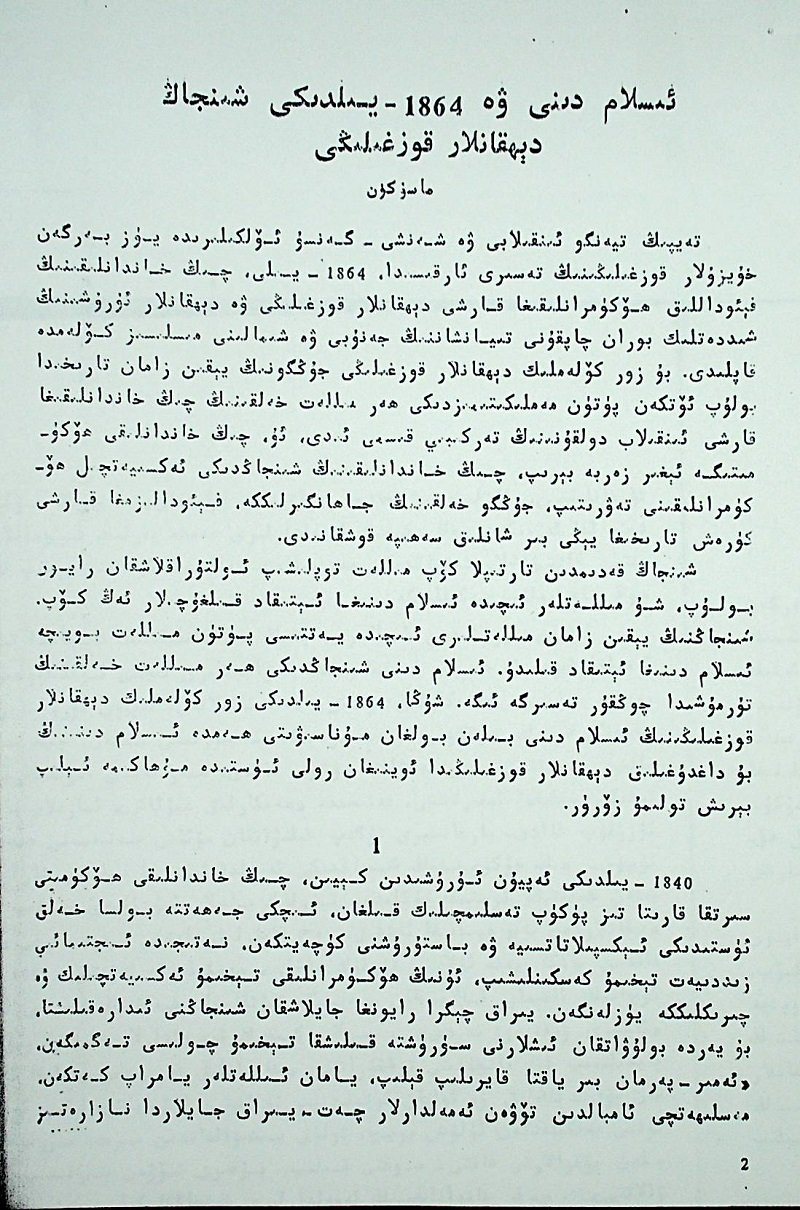 ئىسلام دىنى ۋە 1864 - يىلدىكى شىنجاڭ
دېھقانلار قوزغىلىڭى
ماسۇكۇن
تەيپىڭ تيەنگو ئىنقىلابى ۋە شەنشى - گەنسۇ ئۆلكىلىرىدە يۈز بەرگەن
خۇيزۇلار قوزغىلىڭىنىڭ تەسىرى ئارقىسىدا، 1864 - يىلى، چىڭ خاندانلىقىنىڭ
فېئوداللىق ھۆكۈمرانلىقىغا قارشى دېھقانلار قوزغىلىڭى ۋە دېھقانلار ئۇرۇشىنىڭ
شىددەتلىك بوران چاپقۇنى تىيانشاننىڭ جەنۇبى ۋە شىمالىنى مىسلىسىز كۆلەمدە
قاپلىدى. بۇ زور كۆلەملىك دېھقانلار قوزغىلىڭى جۇڭگونىڭ يېقىن زامان تارىخىدا
بولۇپ ئۆتكەن پۈتۈن مەملىكىتىمىزدىكى ھەر مىللەت خەلقىنىڭ چىڭ خاندانلىقىغا
قارشى ئىنقىلاب دولقۇنىنىڭ تەركىبىي قىسمى ئىدى، ئۇ، چىڭ خاندانلىقى ھۆكۈ-
مىتىگە ئېغىر زەربە بېرىپ، چىڭ خاندانلىقىنىڭ شىنجاڭدىكى ئەكسىيەتچىل ھۆ-
كۈمرانلىقىنى تەۋرىتىپ، جۇڭگو خەلقىنىڭ جاھانگىرلىككە، فېئودالىزمغا قارشى
كۈرەش تارىخىغا يېڭى بىر شانلىق سەھىپە قوشقانىدى.
شىنجاڭ قەدىمدىن تارتىپلا كۆپ مىللەت توپلىشىپ ئولتۇراقلاشقان رايون
بولۇپ، شۇ مىللەتلەر ئىچىدە ئىسلام دىنىغا ئېتىقاد قىلغۇچىلار ئەڭ كۆپ.
شىنجاڭنىڭ يېقىن زامان مىللەتلىرى ئىچىدە يەتتىسى پۈتۈن مىللەت بويىچە
ئىسلام دىنىغا ئېتىقاد قىلىدۇ. ئىسلام دىنى شىنجاڭدىكى ھەر مىللەت خەلقىنىڭ
تۇرمۇشىدا چوڭقۇر تەسىرگە ئىگە. شۇڭا، 1864 - يىلدىكى زور كۆلەملىك دېھقانلار
قوزغىلىڭىنىڭ ئىسلام دىنى بىلەن بولغان مۇناسىۋىتى ھەمدە ئىسلام دىنىنىڭ
بۇ داغدۇغىلىق دېھقانلار قوزغىلىڭىدا ئوينىغان رولى ئۈستىدە مۇھاكىمە ئېلىپ
بېرىش تولىمۇ زۆرۈر.
1
1840 - يىلدىكى ئەپيۈن ئۇرۇشىدىن كېيىن، چىڭ خاندانلىقى ھۆكۈمىتى
سىرتقا قارىتا تىز پۈكۈپ تەسلىمچىلىك قىلغان، ئىچكى جەھەتتە بولسا خەلق
ئۈستىدىكى ئېكسپىلاتاتسىيە ۋە باستۇرۇشنى كۈچەيتكەن، نەتىجىدە ئىجتىمائىي
زىددىيەت تېخىمۇ كەسكىنلىشىپ، ئۇنىڭ ھۆكۈمرانلىقى تېخىمۇ ئەكسىيەتچىلىك ۋە
چىرىكلىككە يۈزلەنگەن. يىراق چېگرا رايونغا جايلاشقان شىنجاڭنى ئىدارە قىلىشتا،
بۇ يەردە بولۇۋاتقان ئىشلارنى سۈرۈشتە قىلىشقا تېخىمۇ چولىسى تەگمىگەن،
«ئەمىر - پەرمان بىر ياقتا قايرىلىپ قېلىپ، يامان ئىللەتلەر يامراپ كەتكەن،
مەسلىھەتچى ئامبالدىن تۆۋەن ئەمەلدارلار چەت - يىراق جايلاردا نازارەتسىز
2